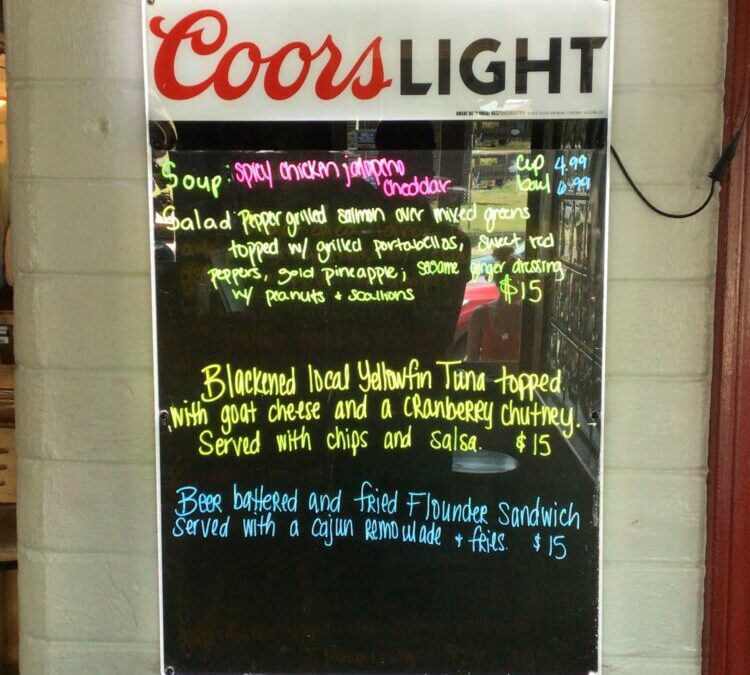 Coors LIGHT
Soup: Spicy chicken jalapeno cup 4.99
cheddar bowl 6.99
Salad Pepper grilled salmon over mixed greens
topped w/ grilled portabellas, sweet red
peppers, gold pineapple; sesame ginger dressing
w/ peanuts + scallions $15
Blackened local Yellowfin Tuna topped
with goat cheese and a cranberry chutney.
Served with chips and salsa. $15
Beer battered and fried Flounder Sandwich
served with a cajun remoulade + fries. $15